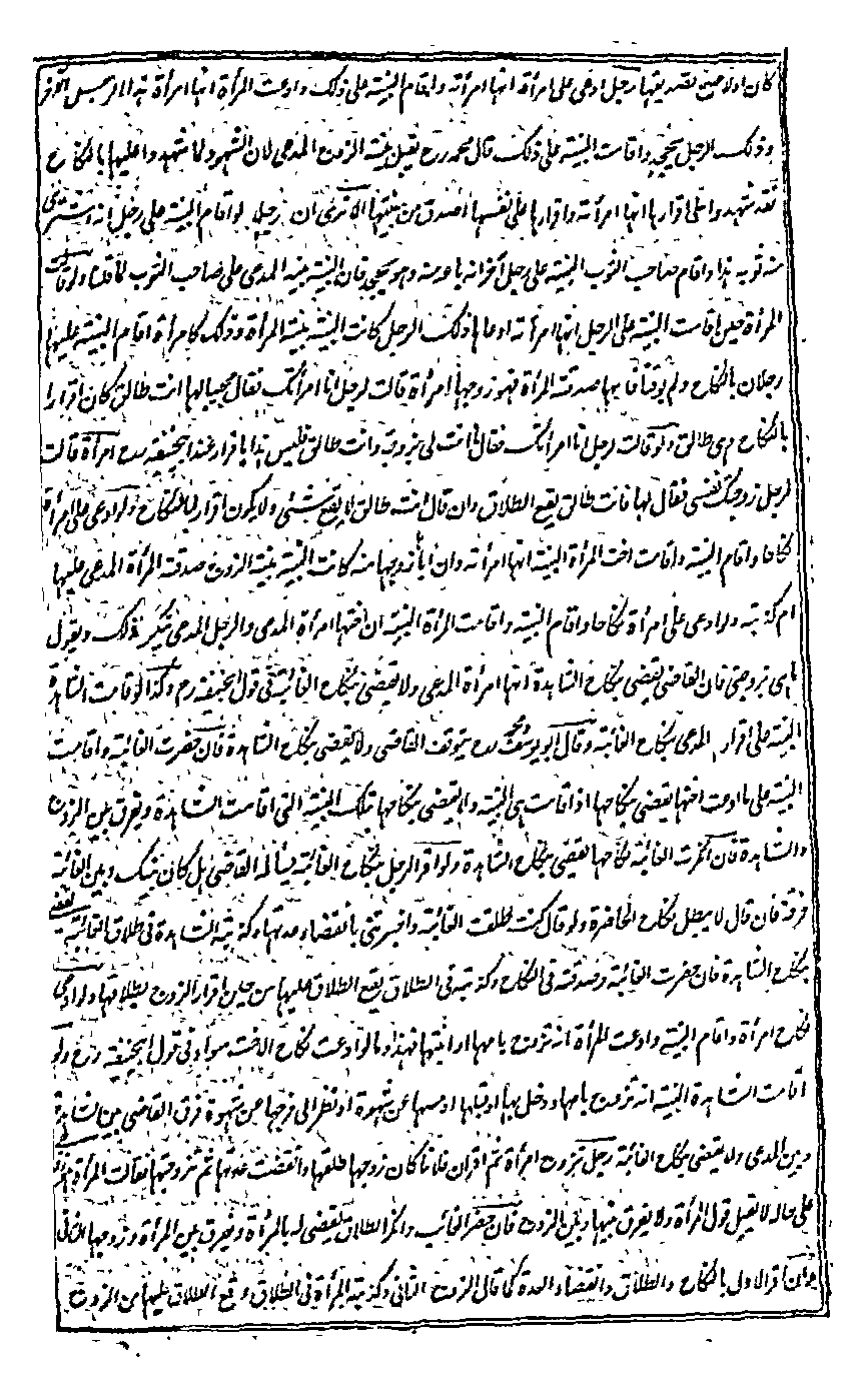 كان اولا صح تصديقها رجل ادعى على امرأة انها امرأته واقام البينة على ذلك وادعت المرأة انها امرأة هذا الرجل الآخر
وذلك الرجل يجحد واقامت البينة على ذلك قال محمد رح تقبل بينة الزوج المدعى لان الشهود لما شهدوا عليها بالنكاح
فقد شهدوا على اقرارها انها امرأته واقرارها على نفسها اصدق من بينتها الا ترى ان رجلا لو اقام البينة على رجل انه اشترى
منه ثوبه هذا واقام صاحب الثوب البينة على رجل آخر انه باعه منه وهو يجحد فان البينة بينة المدعى على صاحب الثوب لما قلنا ولو
المرأة حين اقامت البينة على الرجل انها امرأته ادعاها ذلك الرجل كانت البينة بينة المرأة وذلك كامرأة اقام البينة عليها
رجلان بالنكاح ولم يوقتا فايهما صدقته المرأة فهو زوجها امرأة قالت لرجل انا امرأتك فقال مجيبا لها انت طالق كان اقرارا
بالنكاح وهى طالق ولو قالت لرجل انا امرأتك فقال ما انت لى بزوجة وانت طالق فليس هذا باقرار عند ابيحنيفة رح امرأة قالت
لرجل زوجتك نفسى فقال لها فانت طالق يقع الطلاق وان قال انت طالق لا يقع شئ ولا يكون اقرارا بالنكاح ولو ادعى على امرأة
نكاحا واقام البينة واقامت اخت المرأة البينة انها امرأته وان اباها زوجها منه كانت البينة بينة الزوج صدقته المرأة المدعى عليها
ام كذبته ولو ادعى على امرأة نكاحا واقام البينة واقامت المرأة البينة ان اختها امرأة المدعى والرجل المدعى ينكر ذلك ويقول
ما هى بزوجتى فان القاضى يقضى بنكاح الشاهدة انها امرأة المدعى ولا يقضى بنكاح الغائبة فى قول ابيحنيفة رح وكذا لو اقامت الشاهدة
البينة على اقرار المدعى بنكاح الغائبة وقال ابو يوسف ومحمد رح يتوقف القاضى ولا يقضى بنكاح الشاهدة فان حضرت الغائبة واقامت
البينة على ما ادعت اختها يقضى بنكاحها اذا اقامت هى البينة ولا يقضى بنكاحها بتلك البينة التى اقامت الشاهدة ويفرق بين الزوج
والشاهدة فان انكرت الغائبة نكاحها يقضى بنكاح الشاهدة ولو اقر الرجل بنكاح الغائبة يسأله القاضى هل كان بينك وبين الغائبة
فرقة فان قال لا يبطل نكاح الحاضرة ولو قال كنت طلقت الغائبة واخبرتنى بانقضاء عدتها وكذبته الشاهدة فى طلاق الغائبة يقضى
بنكاح الشاهدة فان حضرت الغائبة وصدقته فى النكاح وكذبته فى الطلاق يقع الطلاق عليها من حين اقرار الزوج بطلاقها ولو ادعى
نكاح امرأة واقام البينة وادعت المرأة انه تزوج بامها او ابنتها فهذا وما لو ادعت نكاح الاخت سواء فى قول ابيحنيفة رح ولو
اقامت الشاهدة البينة انه تزوج بامها ودخل بها او قبلها او مسها عن شهوة او نظر الى فرجها عن شهوة فرق القاضى بين الشاهدة
وبين المدعى ولا يقضى بنكاح الغائبة رجل تزوج امرأة ثم اقر ان فلانا كان زوجها طلقها وانقضت عدتها ثم تزوجتها فقالت المرأة
على حاله لا يقبل قول المرأة ولا يفرق بينها وبين الزوج فان حضر الغائب وانكر الطلاق يقضى له بالمرأة ويفرق بين المرأة وزوجها الثانى
وان اقر الاول بالنكاح والطلاق وانقضاء العدة كما قال الزوج الثانى وكذبته المرأة فى الطلاق وقع الطلاق عليها من الزوج